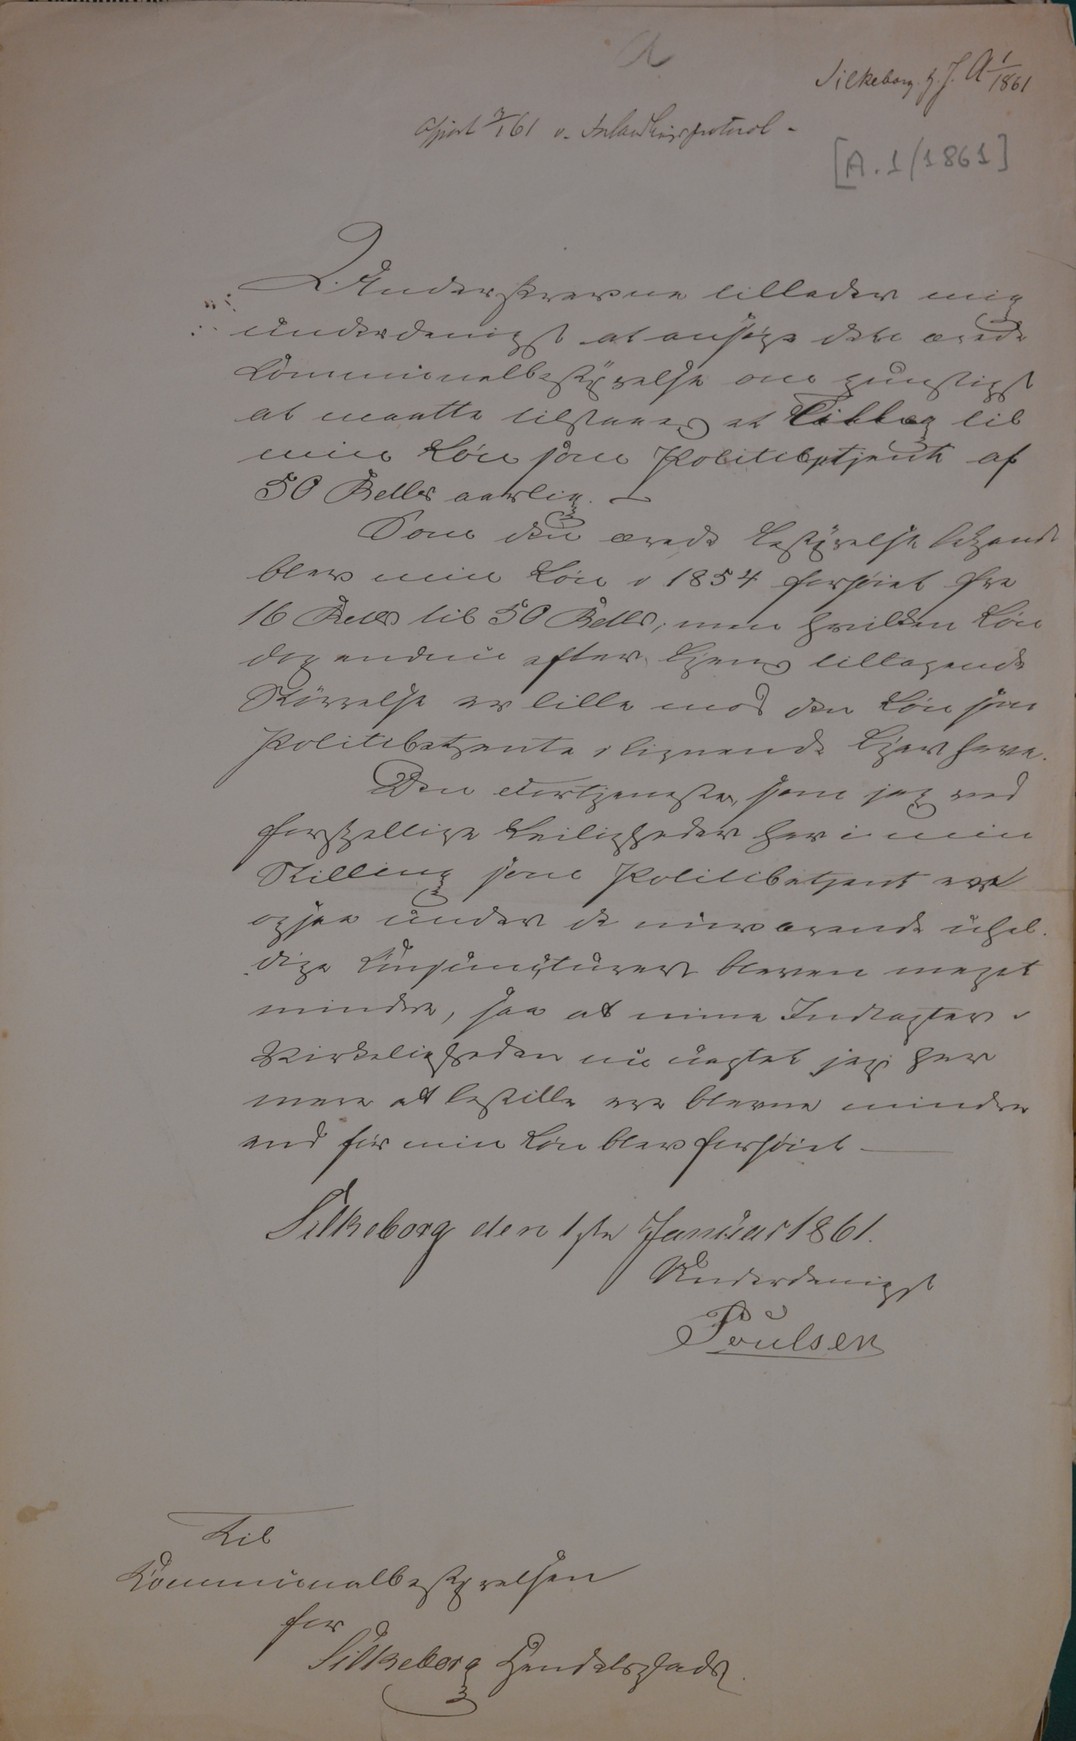 a
Silkeborg. H. J. A 1/1861
Afgjort 3/1 61 v. Forhandlingsprotocol -
[A.1/1861]
Underskrevne tillader mig
underdanigst at ansøge dette ærede
Communalbestyrelse om gunstigst
at maatte tilstaaes et Tillæg til
min Løn som Politibetjent af
50 Rdlr aarlig. —
Som den ærede Bestyrelse bekjendt
blev min Løn i 1854 forhøiet fra
16 Rdlr til 50 Rdlr, men hvilken Løn
dog endnu efter Byens tiltagende
Størrelse er lille mod den Løn som
Politibetjente i lignende Byer have.
Den Fortjeneste, som jeg ved
forskjellige Leiligheder har i min
Stilling som Politibetjent er
ogsaa under de nuværende uhel-
dige Conjuncturer bleven meget
mindre, saa at mine Indtægter i
Virkeligheden nu uagtet jeg har
mere at bestille ere blevne mindre
end før min Løn blev forhøiet —
Silkeborg den 1ste Januar 1861.
Underdanigst
Poulsen
Til
Communalbestyrelsen
for
Silkeborg Handelsplads.